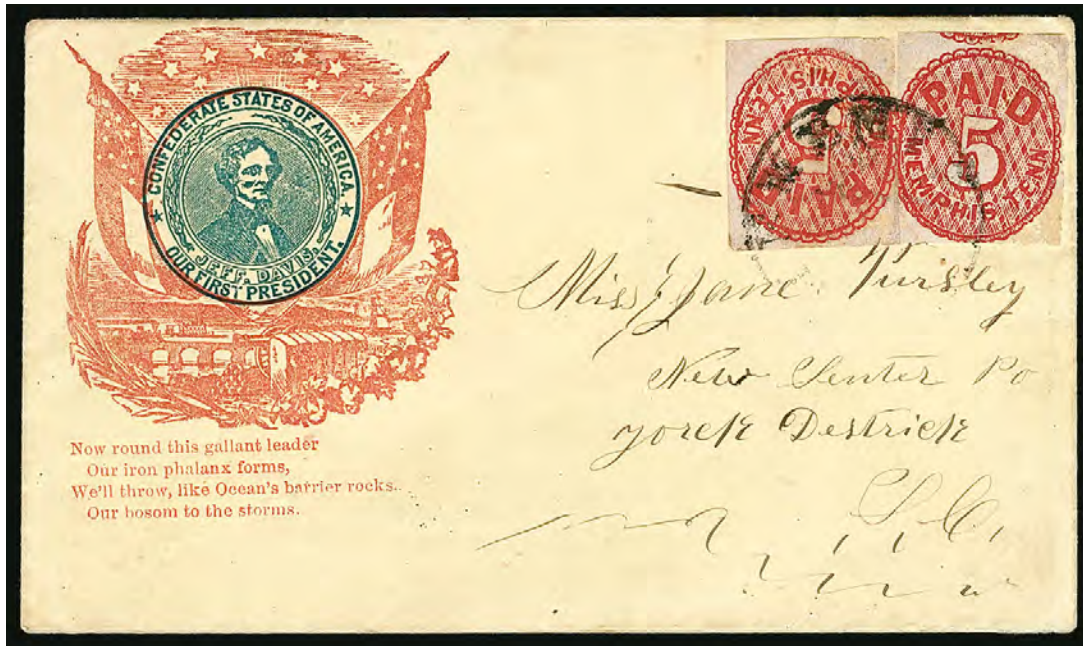 CONFEDERATE STATES OF AMERICA.
JEFF. DAVIS,
OUR FIRST PRESIDENT.
Now round this gallant leader
Our iron phalanx forms,
We'll throw, like Ocean's barrier rocks,
Our bosom to the storms.
PAID
5
MEMPHIS, TENN.
PAID
5
MEMPHIS TENN
Miss Jane Pursley
New Senter Po
yorck Destrick
S. C.